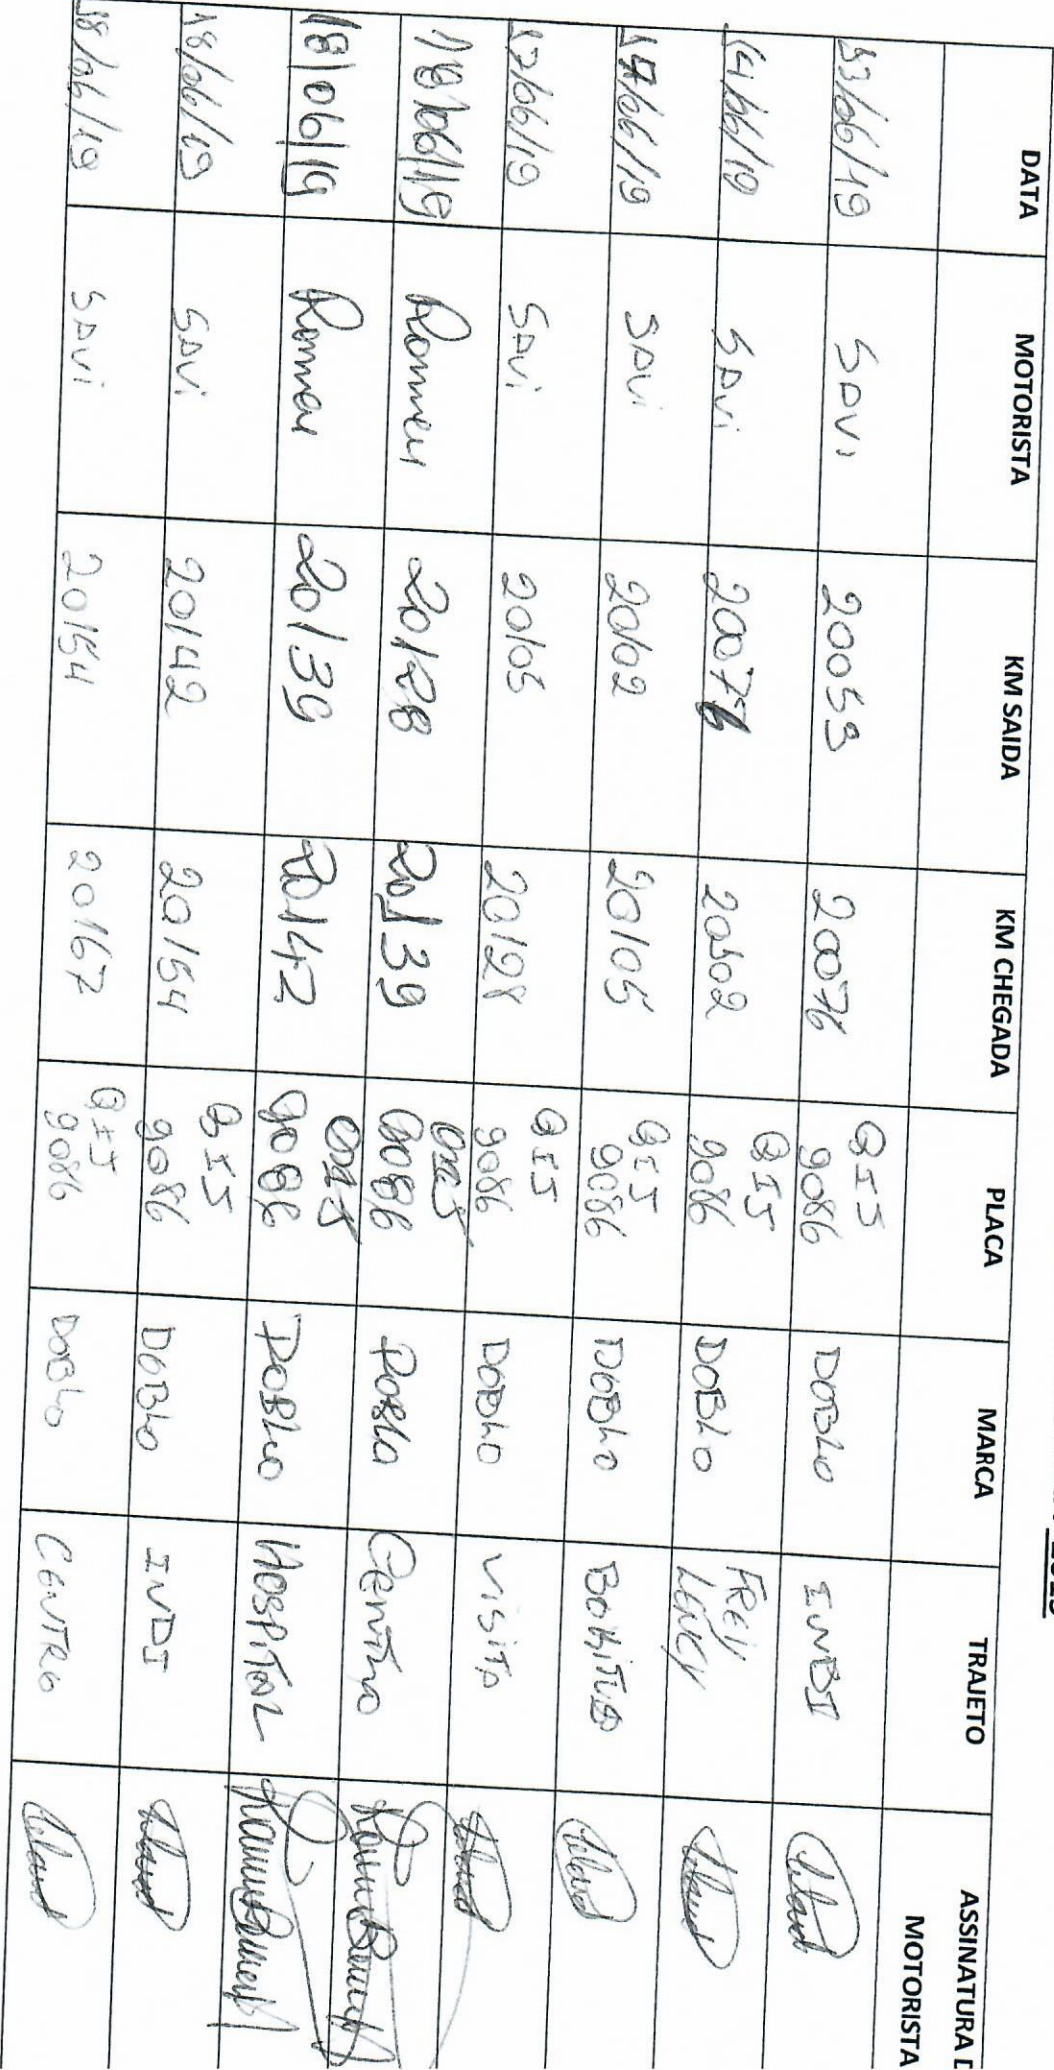 2019
DATA MOTORISTA KM SAIDA KM CHEGADA PLACA MARCA TRAJETO ASSINATURA D
MOTORISTA
13/06/19 SAVI 20059 20076 QIJ 9086 DOBLO INDI
14/06/19 SAVI 20076 20102 QIJ 9086 DOBLO FREI LENCY
17/06/19 SAVI 20102 20105 QIJ 9086 DOBLO
17/06/19 SAVI 20105 20128 QIJ 9086 DOBLO VISITA
18/06/19 Romeu 20128 20139 9086 DOBLO Centro
18/06/19 Romeu 20139 20142 9086 DOBLO HOSPITAL
18/06/19 SAVI 20142 20154 QIJ 9086 DOBLO INDI
18/06/19 SAVI 20154 20167 QIJ 9086 DOBLO CENTRO